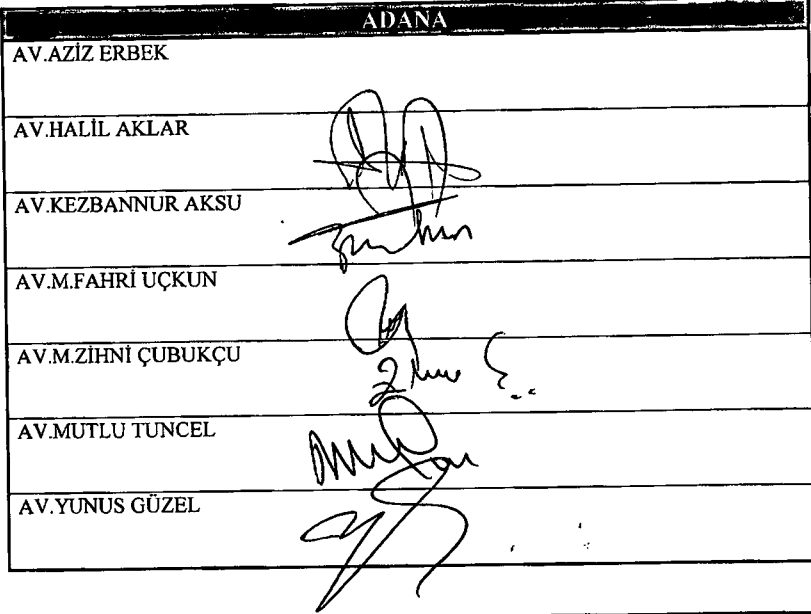 ADANA
AV.AZİZ ERBEK
AV.HALİL AKLAR
AV.KEZBANNUR AKSU
AV.M.FAHRİ UÇKUN
AV.M.ZİHNİ ÇUBUKÇU
AV.MUTLU TUNCEL
AV.YUNUS GÜZEL